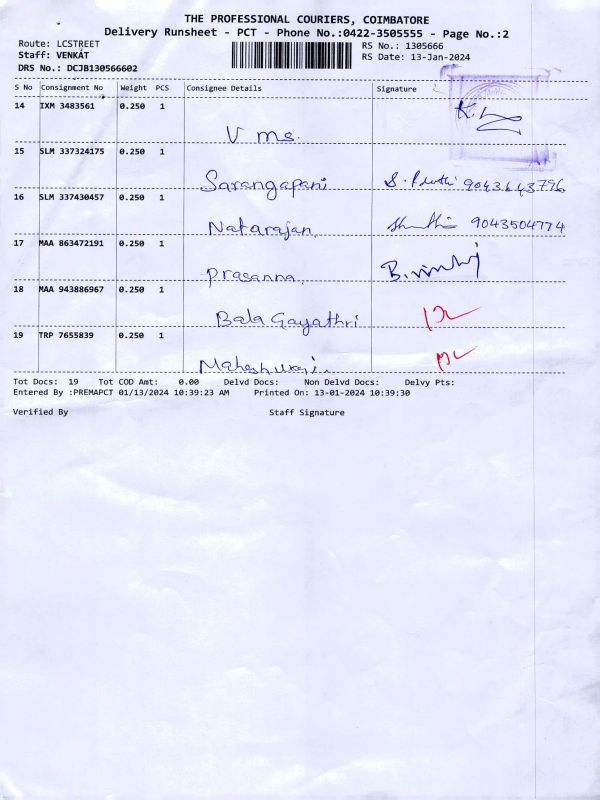 THE PROFESSIONAL COURIERS, COIMBATORE
Delivery Runsheet - PCT - Phone No.:0422-3505555 - Page No.:2
Route: LCSTREET
Staff: VENKAT
DRS No.: DCJB130566602
RS No.: 1305666
RS Date: 13-Jan-2024
S No Consignment No Weight PCS Consignee Details Signature
14 IXM 3483561 0.250 1
V ms.
15 SLM 337324175 0.250 1
Sarangapani 9043643776
16 SLM 337430457 0.250 1
Natarajan 9043504774
17 MAA 863472191 0.250 1
Prasanna
18 MAA 943886967 0.250 1
Bala Gayathri
19 TRP 7655839 0.250 1
Tot Docs: 19 Tot COD Amt: 0.00 Delvd Docs: Non Delvd Docs: Delvy Pts:
Entered By :PREMAPCT 01/13/2024 10:39:23 AM Printed On: 13-01-2024 10:39:30
Verified By Staff Signature